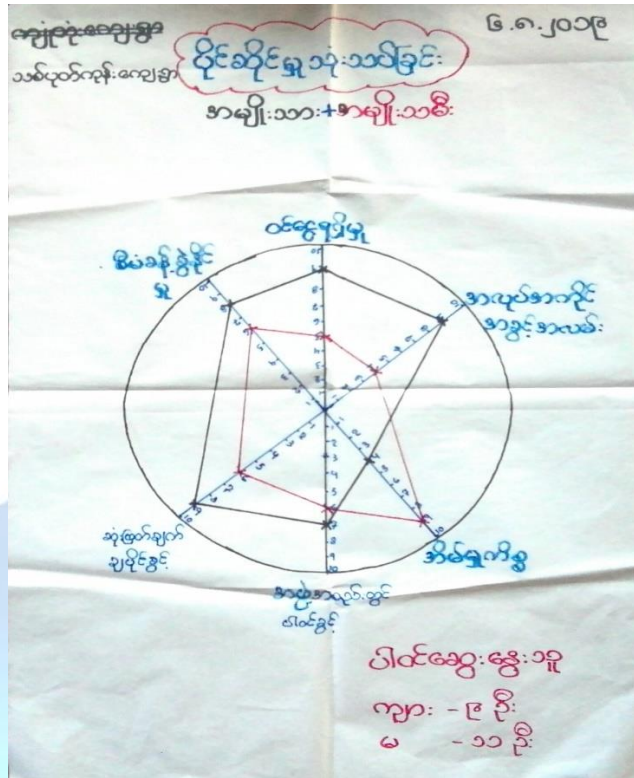 ကျုံတုံးကျေးရွာ
သစ်ပုတ်ကုန်းကျေးရွာ
၆.၈.၂၀၁၉
ပိုင်ဆိုင်မှုသုံးသပ်ခြင်း
အမျိုးသား+အမျိုးသမီး
ဝင်ငွေရရှိမှု
စီမံခန့်ခွဲနိုင်
မှု
အလုပ်အကိုင်
အခွင့်အလမ်း
ဆုံးဖြတ်ချက်
ချပိုင်ခွင့်
အိမ်မှုကိစ္စ
အဖွဲ့အစည်းတွင်
ပါဝင်ခွင့်
ပါဝင်ဆွေးနွေးသူ
ကျား - ၉ ဦး
မ - ၁၁ ဦး